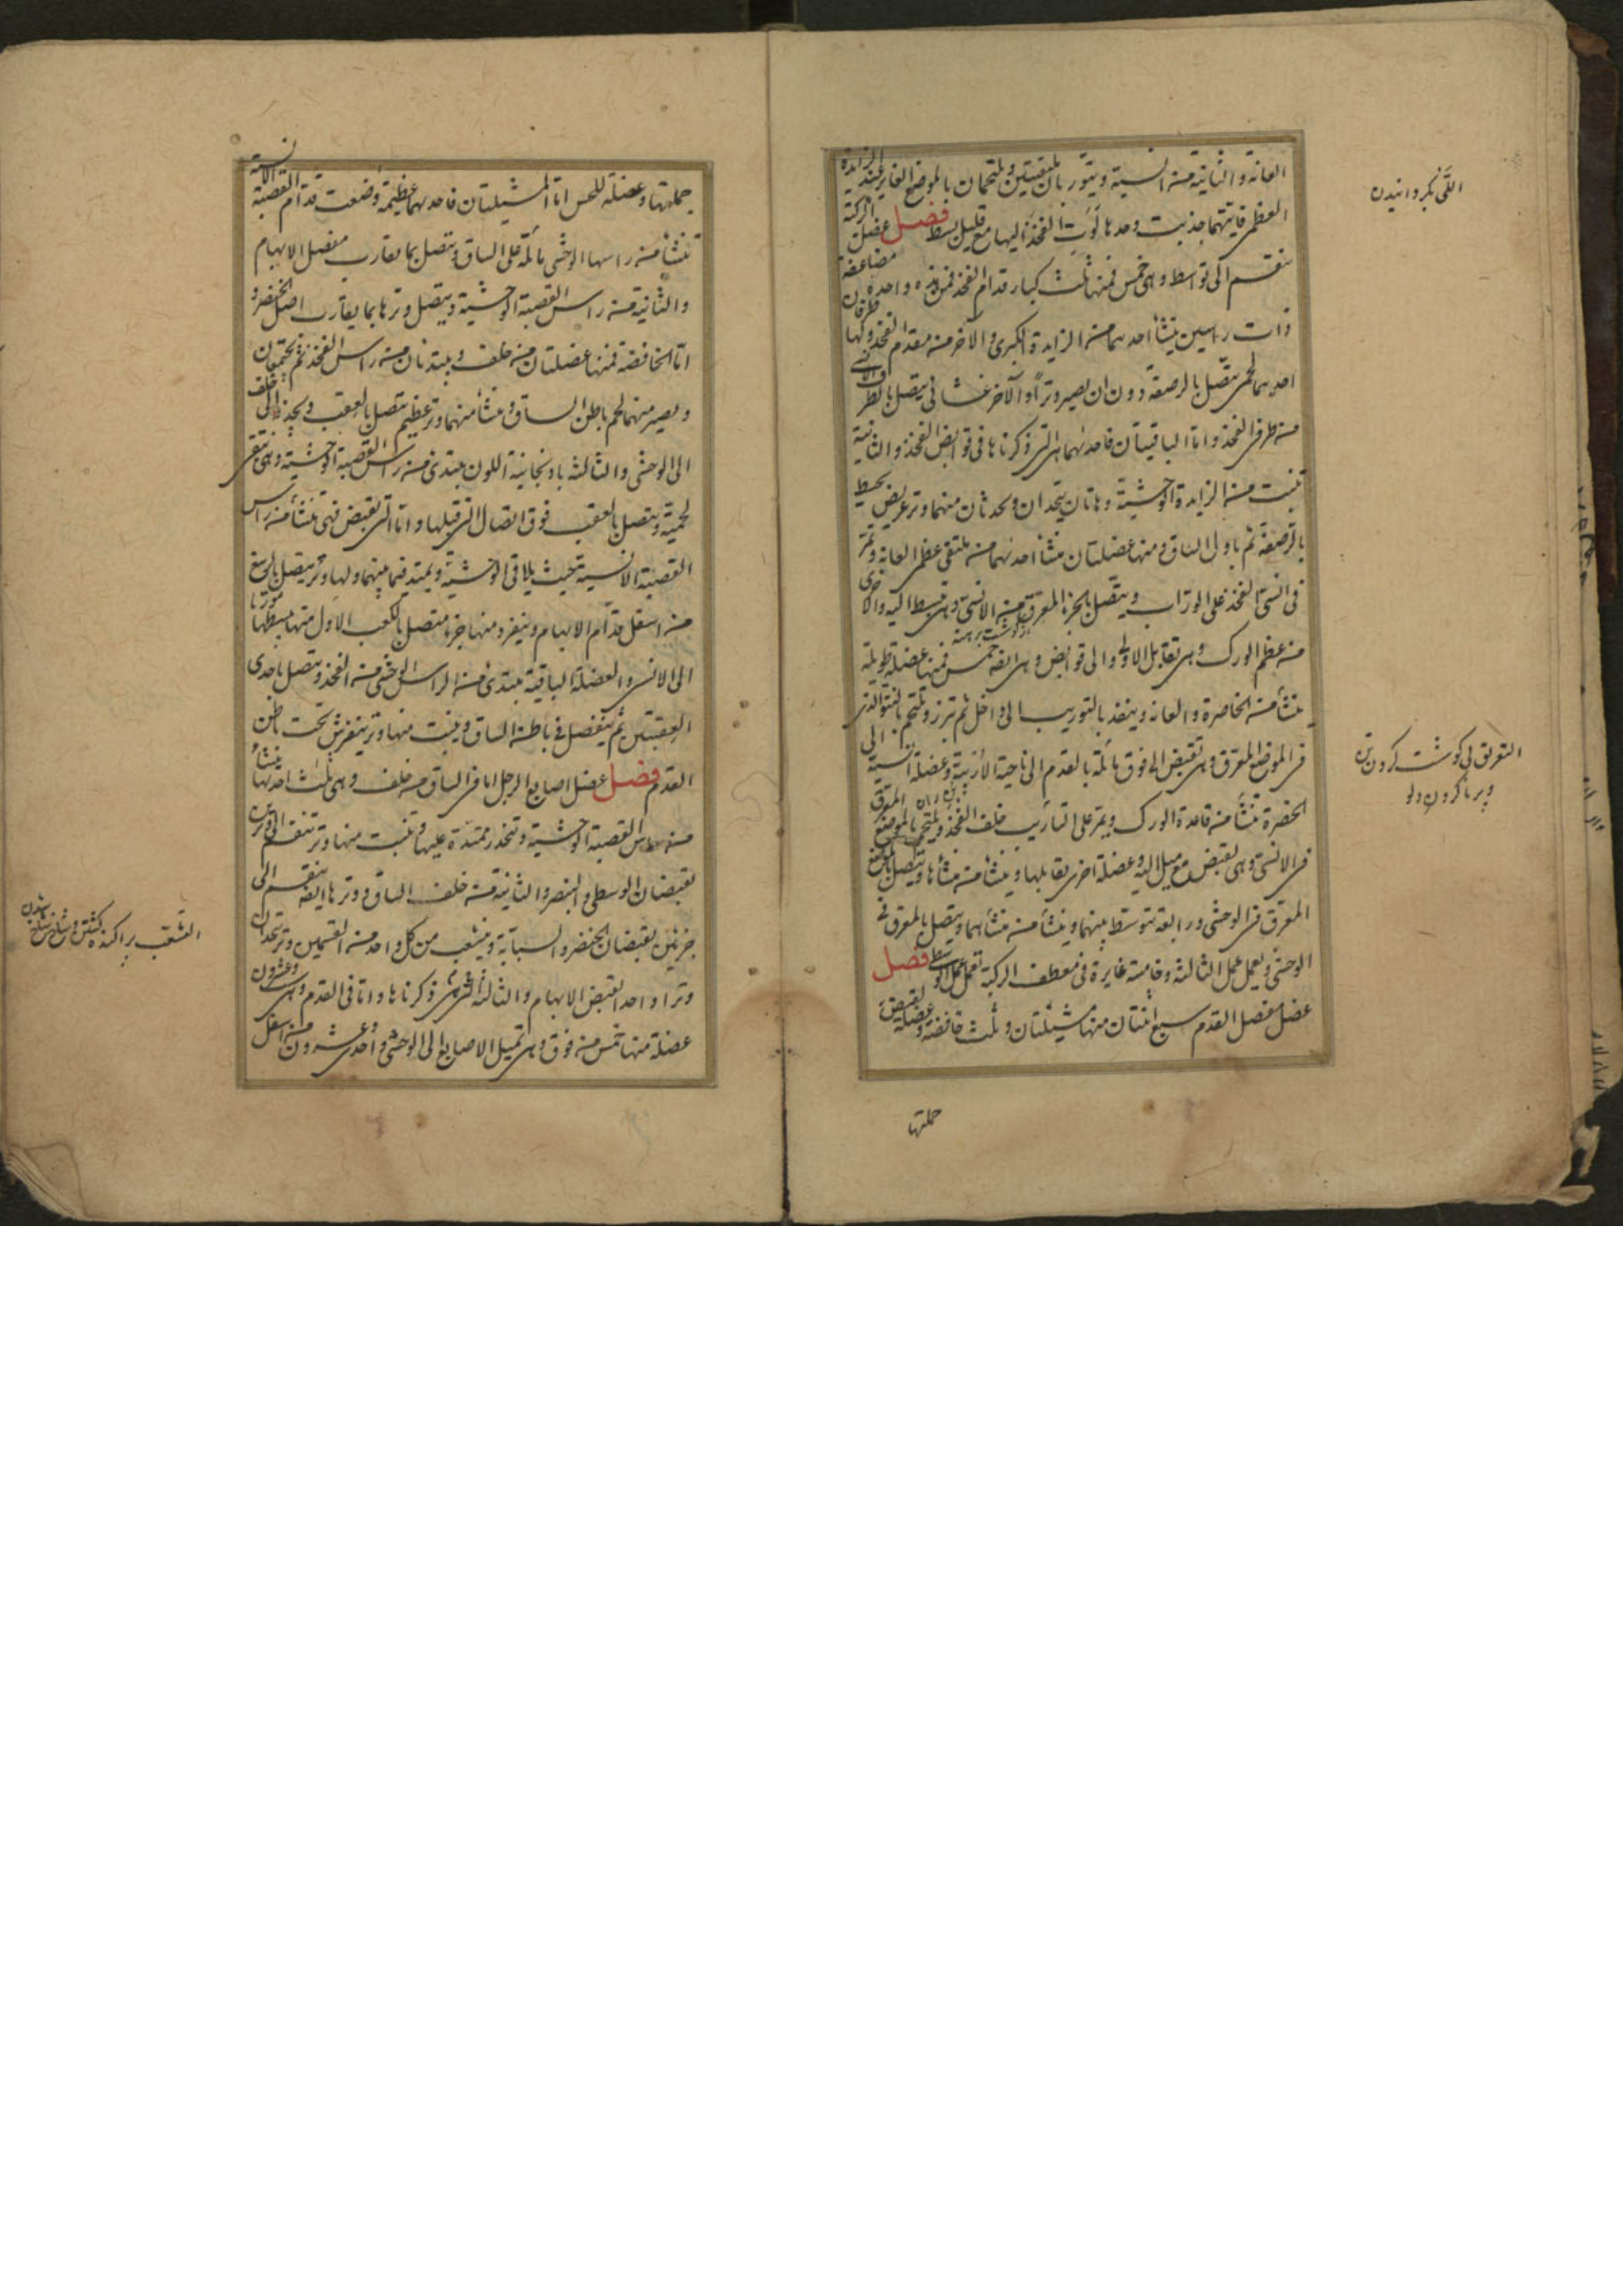 العانة والثانية من انسية ويتوربان ملتفتين ويلتحمان بالموضع الغاير عند الزايدة
العظمى فايتهما جذبت وحدها لوت الفخذ اليها مع قليل بسط فصل عضل الركبة
ينقسم الى بواسط وهى خمس فمنها ثلث كبار قدام الفخذ فمن هذه واحدة مضاعفة
ذات راسين ينشأ احدهما من الزايدة الكبرى والآخر من مقدم الفخذ ولها طرفان
احدهما لحمى يتصل بالرضفة دون ان يصير وترا والآخر غشائى يتصل بالطرف الانسى
من طرفى الفخذ واما الباقيتان فاحدهما هى التى ذكرناها فى قوابض الفخذ والثانية
تنبت من الزايدة الوحشية وهاتان يتحدان ويحدثان منهما وتر عريض يحيط
بالرضفة ثم باول الساق ومنها عضلتان منشأ احدهما من ملتقى عظمى العانة وتمر
فى انسى الفخذ على الوراب ويتصل بالجزء المعرق من الانسى وهى تبسط اليه والاخرى
من عظم الورك وهى تقابل الاولى والى قوابض وهى ايضا خمس فمنها عضلة طويلة
تنشأ من الخاصرة والعانة وينفذ بالتوريب الى داخل ثم تبرز وتلتحم بالنتو الذى
فى الموضع المعرق وهى تقبض الى فوق مائلة بالقدم الى ناحية الأربية وعضلة انسية الى
الخضرة تنشأ من قاعدة الورك ويمر على التأريب خلف الفخذ ويلتحم بالموضع المعرق
فى الانسى وهى تقبض مع ميل اليه وعضلة اخرى يقابلها وينشأ من منشأها ويتصل بالموضع
المعرق فى الوحشى ورابعة تتوسط بينهما وينشأ من منشأهما ويتصل بالمعرق فى
الوحشى ويعمل عمل الثالثة وخامسة غايرة فى معطف الركبة تعمل عمل الوسطى فصل
عضل مفصل القدم سبع اثنتان منها مشيلتان وثلث خافضة وعضلة لقبض
جملتها
اللَّىّ بگردانیدن
التعریق بی گوشت کردن
جملتها وعضلة للخمس اما المشيلتان فاحدهما عظيمة وضعت قدام القصبة الانسية
تنشأ من راسها الوحشى مائلة على الساق ويتصل بما يقارب مفصل الابهام
والثانية من راس القصبة الوحشية ويتصل وترها بما يقارب اصل الخنصر و
اما الخافضة فمنها عضلتان من خلف ويبتديان من راس الفخذ ثم يجتمعان
ويصير منهما لحم باطن الساق وينشأ منهما وتر عظيم يتصل بالعقب ويجذبه الى خلف
الى الوحشى والثالثة باذنجانية اللون يبتدى من راس القصبة الوحشية وهى تبقى
لحمية ويتصل بالعقب فوق اتصال التى قبلها واما التى تقبض فهى تنشأ من راس
القصبة الانسية حيث يلاقى الوحشية ويمتد فيما بينهما ولها وتر يتصل بالرسغ
من اسفل قدام الابهام وينفرد منها جزء متصل بالكعب الاول منها مبسطها مورّبا
الى الانسى والعضلة الباقية يبتدى من الراس الوحشى من الفخذ ويتصل باحدى
العقبتين ثم ينفصل فى باطن الساق وينبت منها وتر ينفرش تحت باطن
القدم فصل عضل اصابع الرجل اما فى الساق من خلف وهى ثلث احدها ينشأ
من راس القصبة الوحشية وتنحدر ممتدة عليها وتنبت منها وتر تنقسم الى وترين
يقبضان الوسطى والبنصر والثانية من خلف الساق ووترها ايضا ينقسم الى
جزئين يقبضان الخنصر والسبابة وينشعب من كل واحد من القسمين وتر يتحدان
وترا واحدا يقبض الابهام والثالثة هى التى ذكرناها واما فى القدم وهى ستة وعشرون
عضلة منها خمس من فوق وهى تميل الاصابع الى الوحشى واحدى وعشرون من اسفل
التشعب پراکنده گشتن و شاخ شاخ شدن